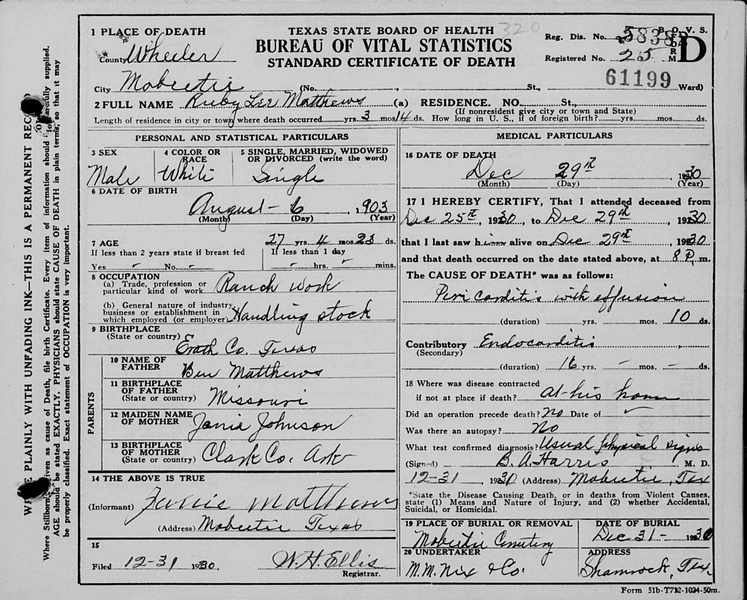 320
TEXAS STATE BOARD OF HEALTH
BUREAU OF VITAL STATISTICS
STANDARD CERTIFICATE OF DEATH
Reg. Dis. No. 5838 P.O.V.S.
FORM D
Registered No. 25
61199
1 PLACE OF DEATH
County Wheeler
City Mobeetie (No. St., Ward)
2 FULL NAME Ruby Lee Matthews (a) RESIDENCE. NO. St.,
(If nonresident give city or town and State)
Length of residence in city or town where death occurred yrs. 3 mos. 14 ds. How long in U. S., if of foreign birth? yrs. mos. ds.
PERSONAL AND STATISTICAL PARTICULARS
3 SEX Male
4 COLOR OR RACE White
5 SINGLE, MARRIED, WIDOWED OR DIVORCED (write the word) Single
6 DATE OF BIRTH
August - 6, 1903
(Month) (Day) (Year)
7 AGE 27 yrs. 4 mos. 23 ds.
If less than 2 years state if breast fed
Yes - No. -
If less than 1 day
- hrs. - mins.
8 OCCUPATION
(a) Trade, profession or particular kind of work Ranch work
(b) General nature of industry, business or establishment in which employed (or employer) Handling stock
9 BIRTHPLACE
(State or country) Erath Co. Texas
PARENTS
10 NAME OF FATHER Ben Matthews
11 BIRTHPLACE OF FATHER (State or country) Missouri
12 MAIDEN NAME OF MOTHER Janie Johnson
13 BIRTHPLACE OF MOTHER (State or country) Clark Co. Ark
14 THE ABOVE IS TRUE
(Informant) Janie Matthews
(Address) Mobeetie Texas
15
Filed 12-31 1930. W.H. Ellis
Registrar.
MEDICAL PARTICULARS
16 DATE OF DEATH
Dec 29th 1930
(Month) (Day) (Year)
17 I HEREBY CERTIFY, That I attended deceased from
Dec 25th, 1930, to Dec 29th, 1930
that I last saw h alive on Dec 29th 1930
and that death occurred on the date stated above, at 8 P. m.
The CAUSE OF DEATH* was as follows:
Pericarditis with effusion
(duration) yrs. mos. 10 ds.
Contributory Endocarditis
(Secondary)
(duration) 16 yrs. - mos. - ds.
18 Where was disease contracted
if not at place if death? At his home
Did an operation precede death? No Date of
Was there an autopsy? No
What test confirmed diagnosis? Usual physical signs
(Signed) Harris M. D.
12-31 1930 (Address) Mobeetie, Tex
*State the Disease Causing Death, or in deaths from Violent Causes, state (1) Means and Nature of Injury, and (2) whether Accidental, Suicidal, or Homicidal.
19 PLACE OF BURIAL OR REMOVAL
Mobeetie Cemetery
DATE OF BURIAL
Dec 31 - 1930
20 UNDERTAKER
M.M. Nix & Co.
ADDRESS
Shamrock, Tex.
Form 51b-T712-1024-50m.
PLAINLY WITH UNFADING INK—THIS IS A PERMANENT
Every item of information should be carefully supplied.
AGE should be stated EXACTLY, PHYSICIANS should state CAUSE OF DEATH in plain terms, so that it may
be properly classified. Exact statement of OCCUPATION is very important.